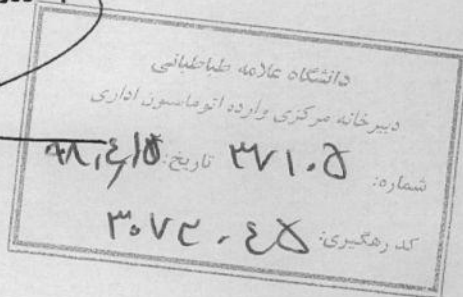 دانشگاه علامه طباطبائی
دبیرخانه مرکزی وارده اتوماسیون اداری
شماره: ۳۷۱۰۵ تاریخ: ۹۸,۴,۱۵
کد رهگیری: ۳۰۷۲۰۴۵